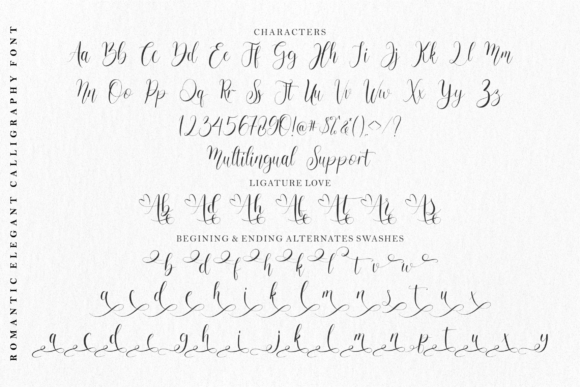 ROMANTIC ELEGANT CALLIGRAPHY FONT
CHARACTERS
Aa Bb Cc Dd Ee Ff Gg Hh Ii Jj Kk Ll Mm
Nn Oo Pp Qq Rr Ss Tt Uu Vv Ww Xx Yy Zz
1234567890!@#$%&().^/?
Multilingual Support
LIGATURE LOVE
Ab Ad Ah Al At Ar As
BEGINING & ENDING ALTERNATES SWASHES
b d f h k l t v w
a c d e h i k l m n s t u x
a c d e g h i j k l m n p t u x y